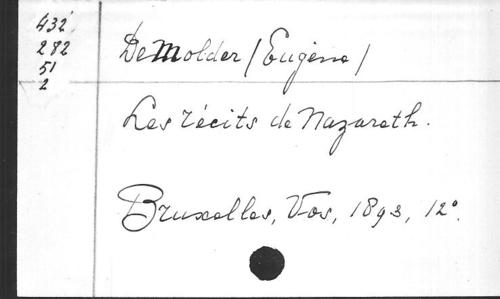 432
282
51
2
DeMolder (Eugène)
Les récits de Nazareth.
Bruxelles, Vos, 1893, 12°.